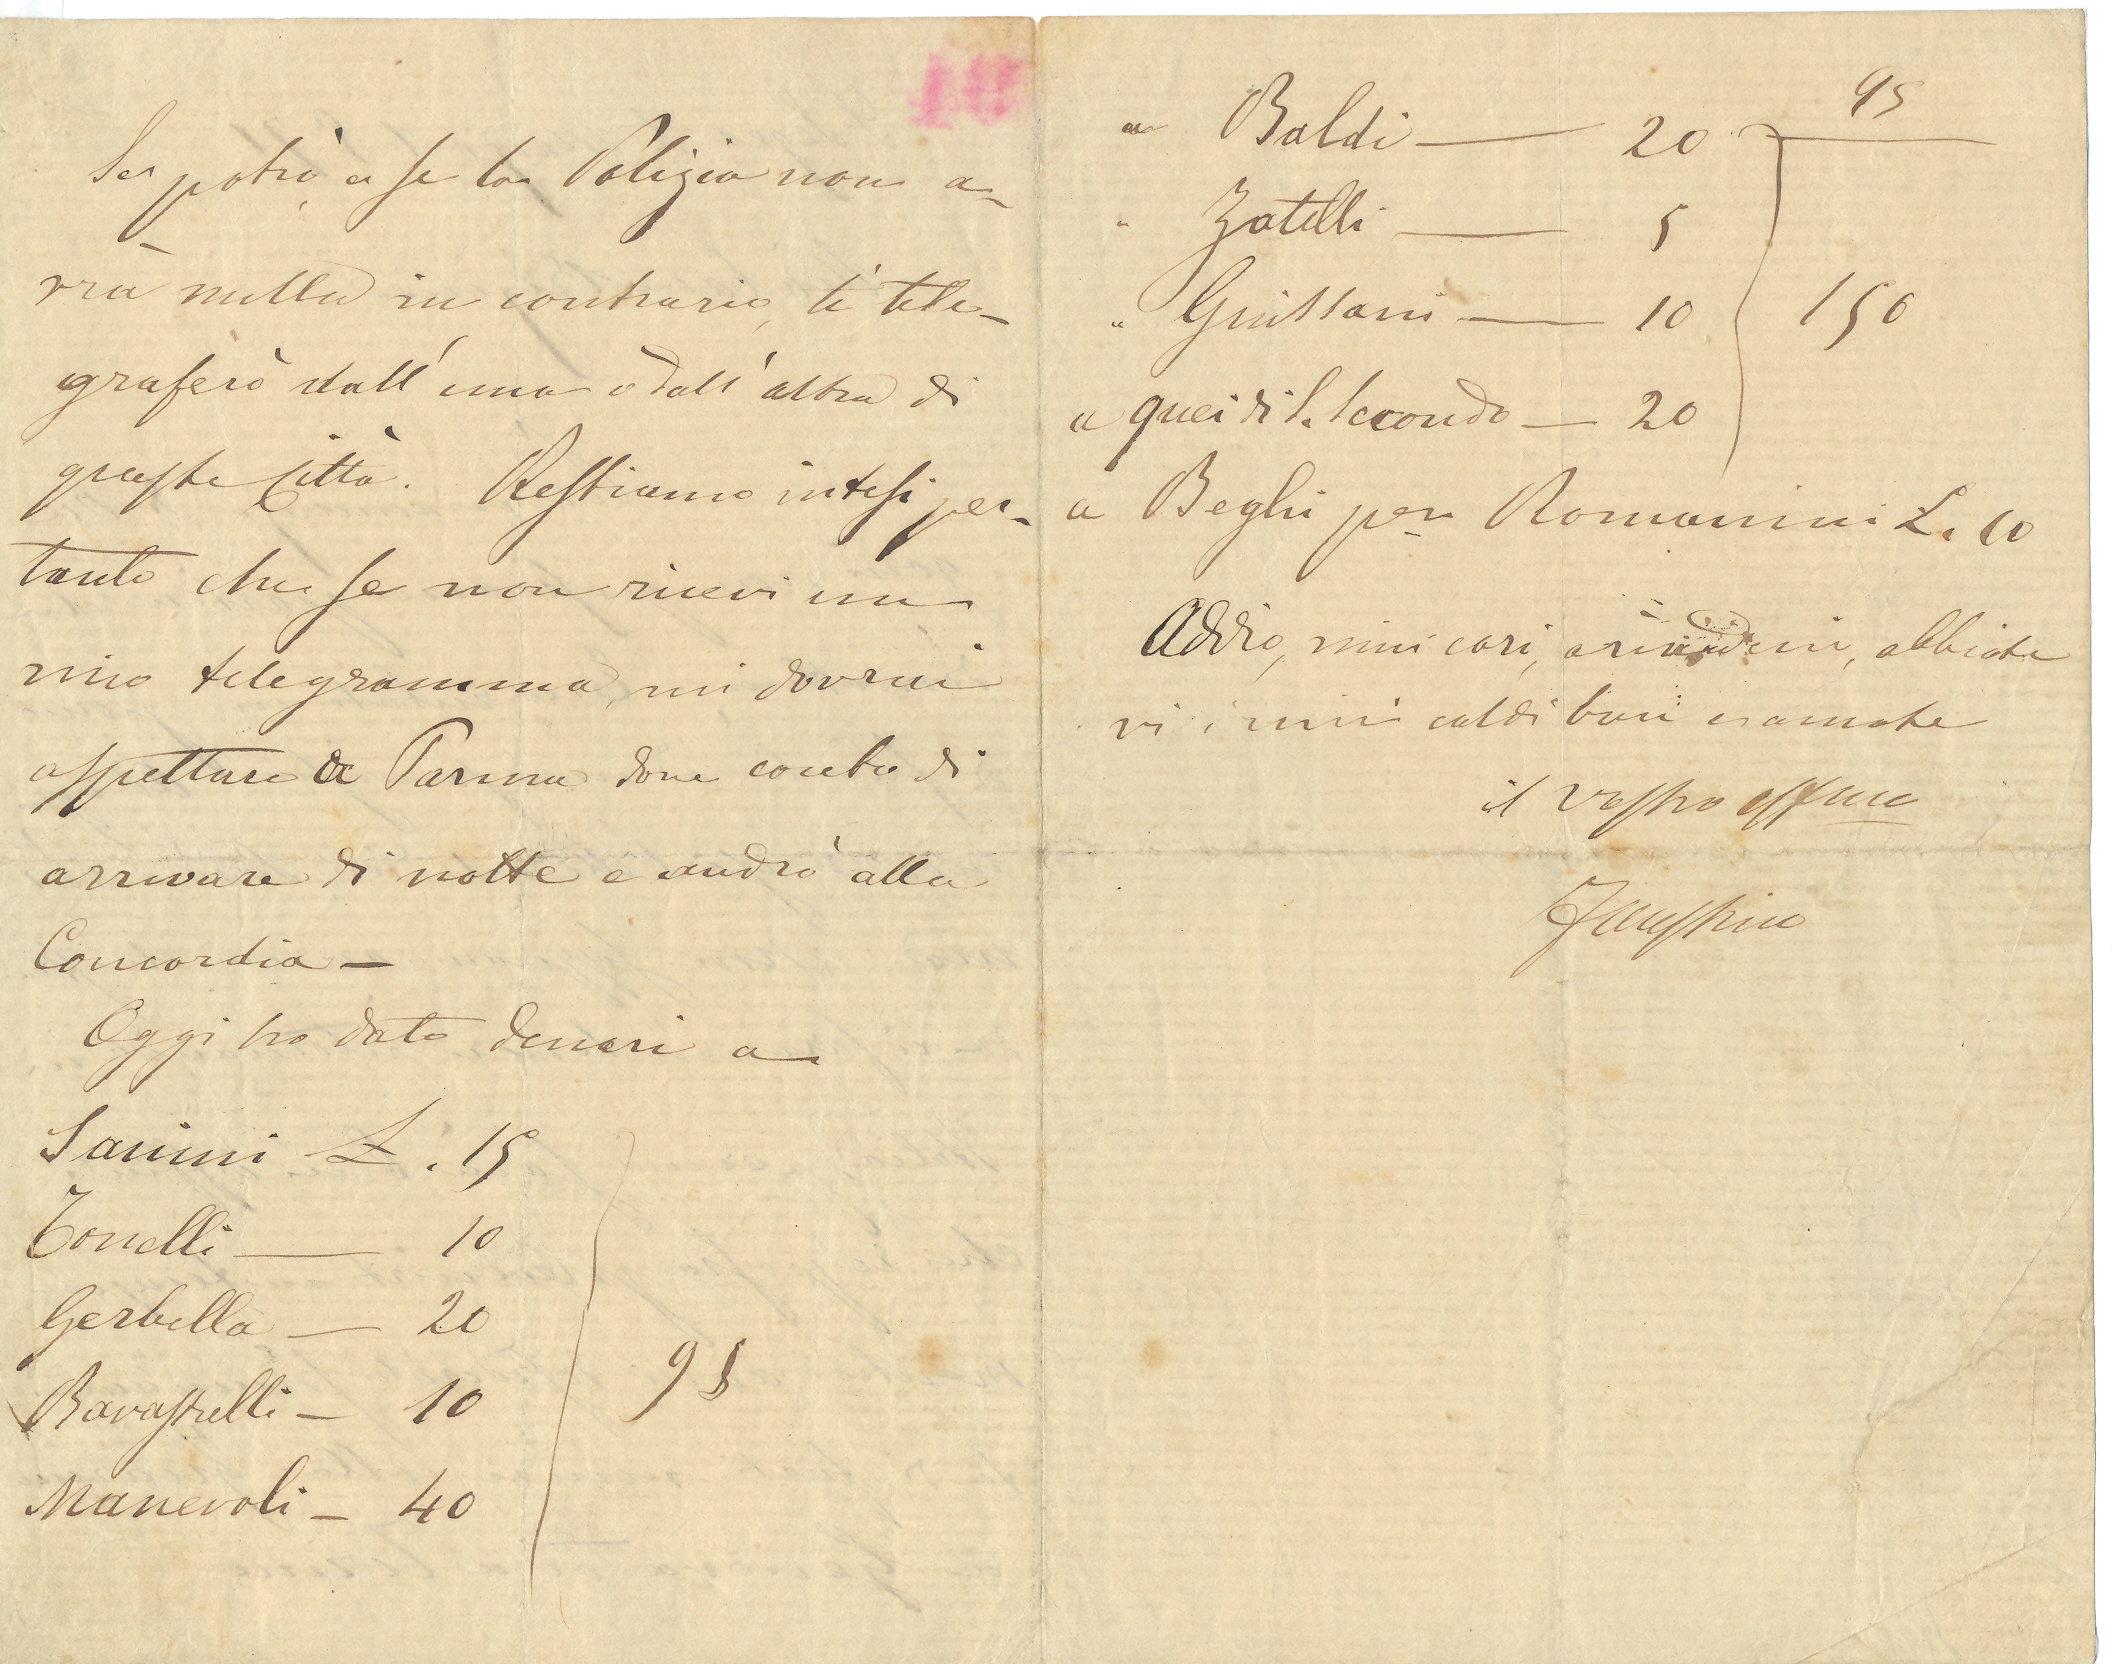 19
Se potrò, e se la Polizia non a-
vrà nulla in contrario, ti tele-
graferò dall'una o dall'altra di
queste Città. Restiamo intesi per-
tanto che se non ricevi un
mio telegramma, mi dovrai
aspettare a Parma dove conto di
arrivare di notte e andrò alla
Concordia -
Oggi ho dato denari a
Sanini L. 15
Tonelli — 10
Gerbella — 20
Ravastelli — 10
Manevoli — 40
95
95
a Baldi — 20
" Zatelli — 5
" Giustani — 10
150
a quei di S. Secondo — 20
a Beghi per Romanini L. 10
Addio, miei cari, a rivederci, abbiate
vi i miei caldi baci e amate
il vostro affmo
Faustino